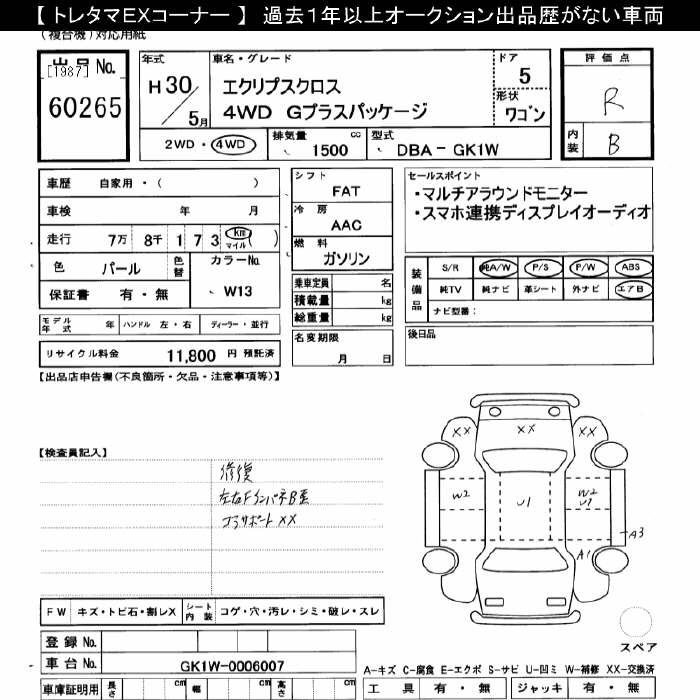 【 トレタマEXコーナー 】 過去1年以上オークション出品歴がない車両
(複合機)対応用紙
出品 No.
[1987]
60265
年式
H30/5月
車名・グレード
エクリプスクロス
4WD Gプラスパッケージ
ドア
5
形状
ワゴン
2WD・4WD
排気量
1500 cc
型式
DBA－GK1W
評価点
R
内装
B
車歴 自家用・( )
車検 年 月
走行 7万 8千 1 7 3 Km マイル ( )
色 パール 色替 カラーNo.
保証書 有・無 W13
モデル年式 年 ハンドル 左・右 ディーラー・並行
リサイクル料金 11,800 円 預託済
シフト
FAT
冷房
AAC
燃料
ガソリン
乗車定員 名
積載量 kg
総重量 kg
名変期限
月 日
セールスポイント
・マルチアラウンドモニター
・スマホ連携ディスプレイオーディオ
装備品
S/R 純A/W P/S P/W ABS
純TV 純ナビ 革シート 外ナビ エアB
ナビ型番：
後日品
【出品店申告欄(不良箇所・欠品・注意事項等)】
【検査員記入】
修復
左右Fインパネ B歪
コアサポート XX
XX XX XX
W2 U1 W2 U1
A3
A1
スペア
FW キズ・トビ石・割レX シート内装 コゲ・穴・汚レ・シミ・破レ・スレ
登録 No.
車台 No. GK1W-0006007
車庫証明用 長さ cm 幅 cm 高さ cm
A－キズ C－腐食 E－エクボ S－サビ U－凹ミ W－補修 XX－交換済
工具 有・無 ジャッキ 有・無